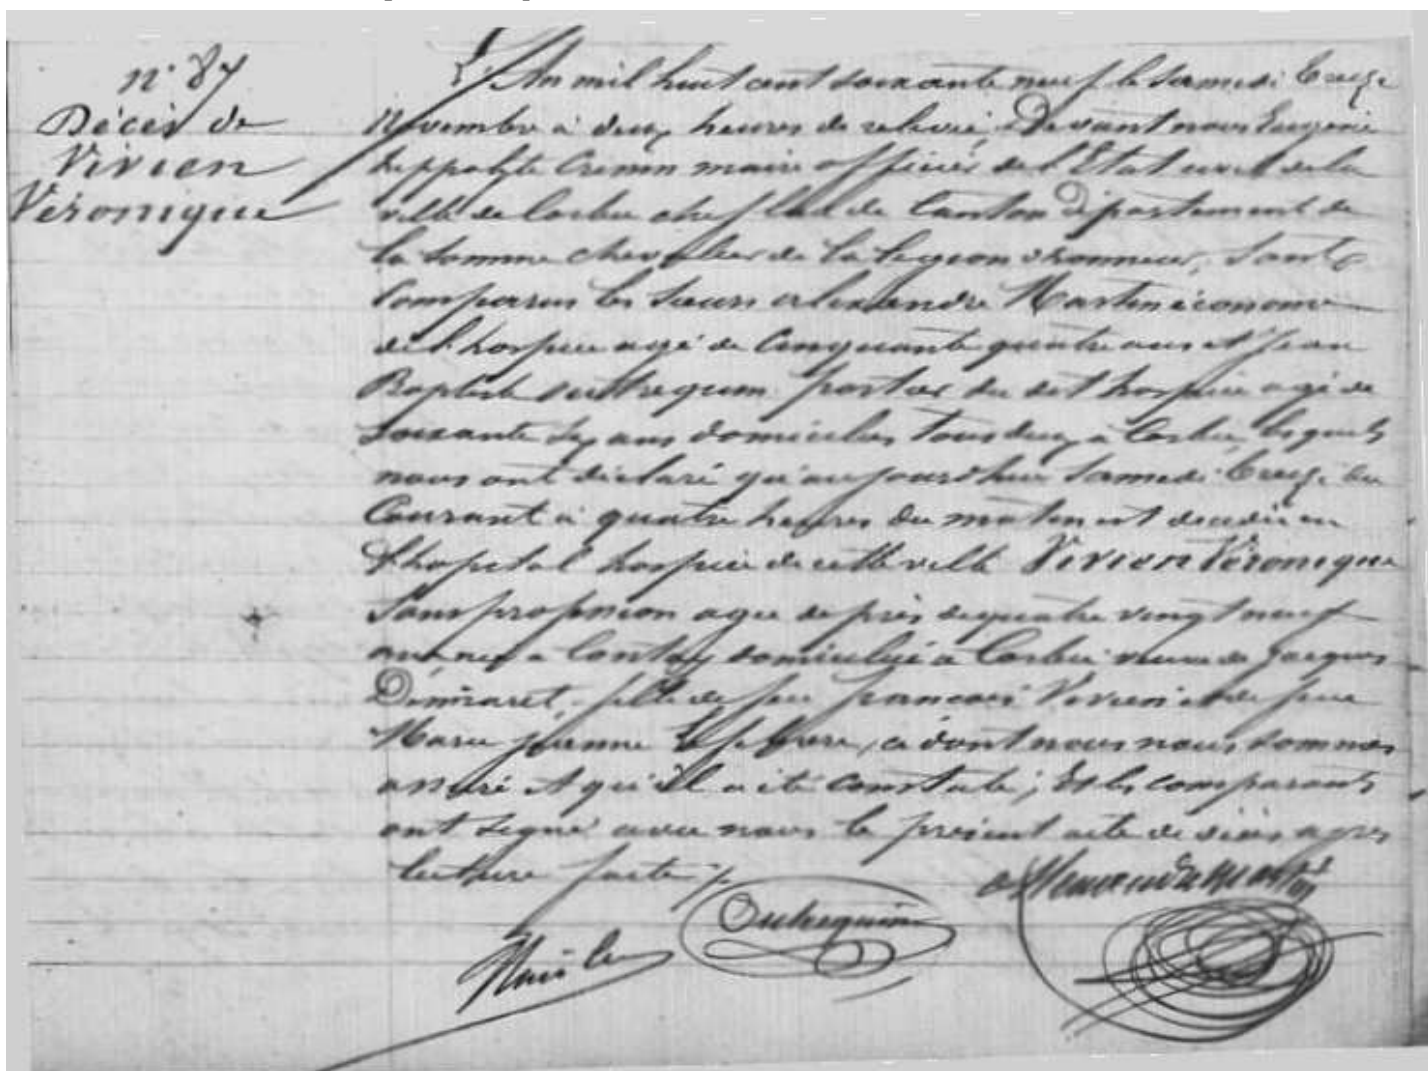 n° 87
Décès de
Vivien
Véronique
L'An mil huit cent soixante neuf le samedi treize
Novembre à deux heures de relevée, Devant nous Eugène
hippolyte maire officier de l'Etat civil de la
ville de Corbie chef lieu de Canton Département de
la Somme chevalier de la légion d'honneur, Sont
Comparus les Sieurs alexandre Martin économe
de l'hospice agé de Cinquante quatre ans et Jean
Baptiste Outrequin portier du dit hospice agé de
soixante ans domiciliés tous deux à Corbie, lesquels
nous ont déclaré qu'aujourdhui samedi treize du
Courant à quatre heures du matin est décédée en
l'hopital hospice de cette ville Vivien Véronique
sans profession agée de près de quatre vingt neuf
ans née à Contay domiciliée à Corbie veuve de Jacques
Démaret, fille de feu francois Vivien et de feue
Marie jeanne Lefebvre, ce dont nous nous sommes
assuré et qu'il a été constaté; Et les comparants
ont signé avec nous le présent acte de décès apres
lecture faite
alexandre martin
Outrequin